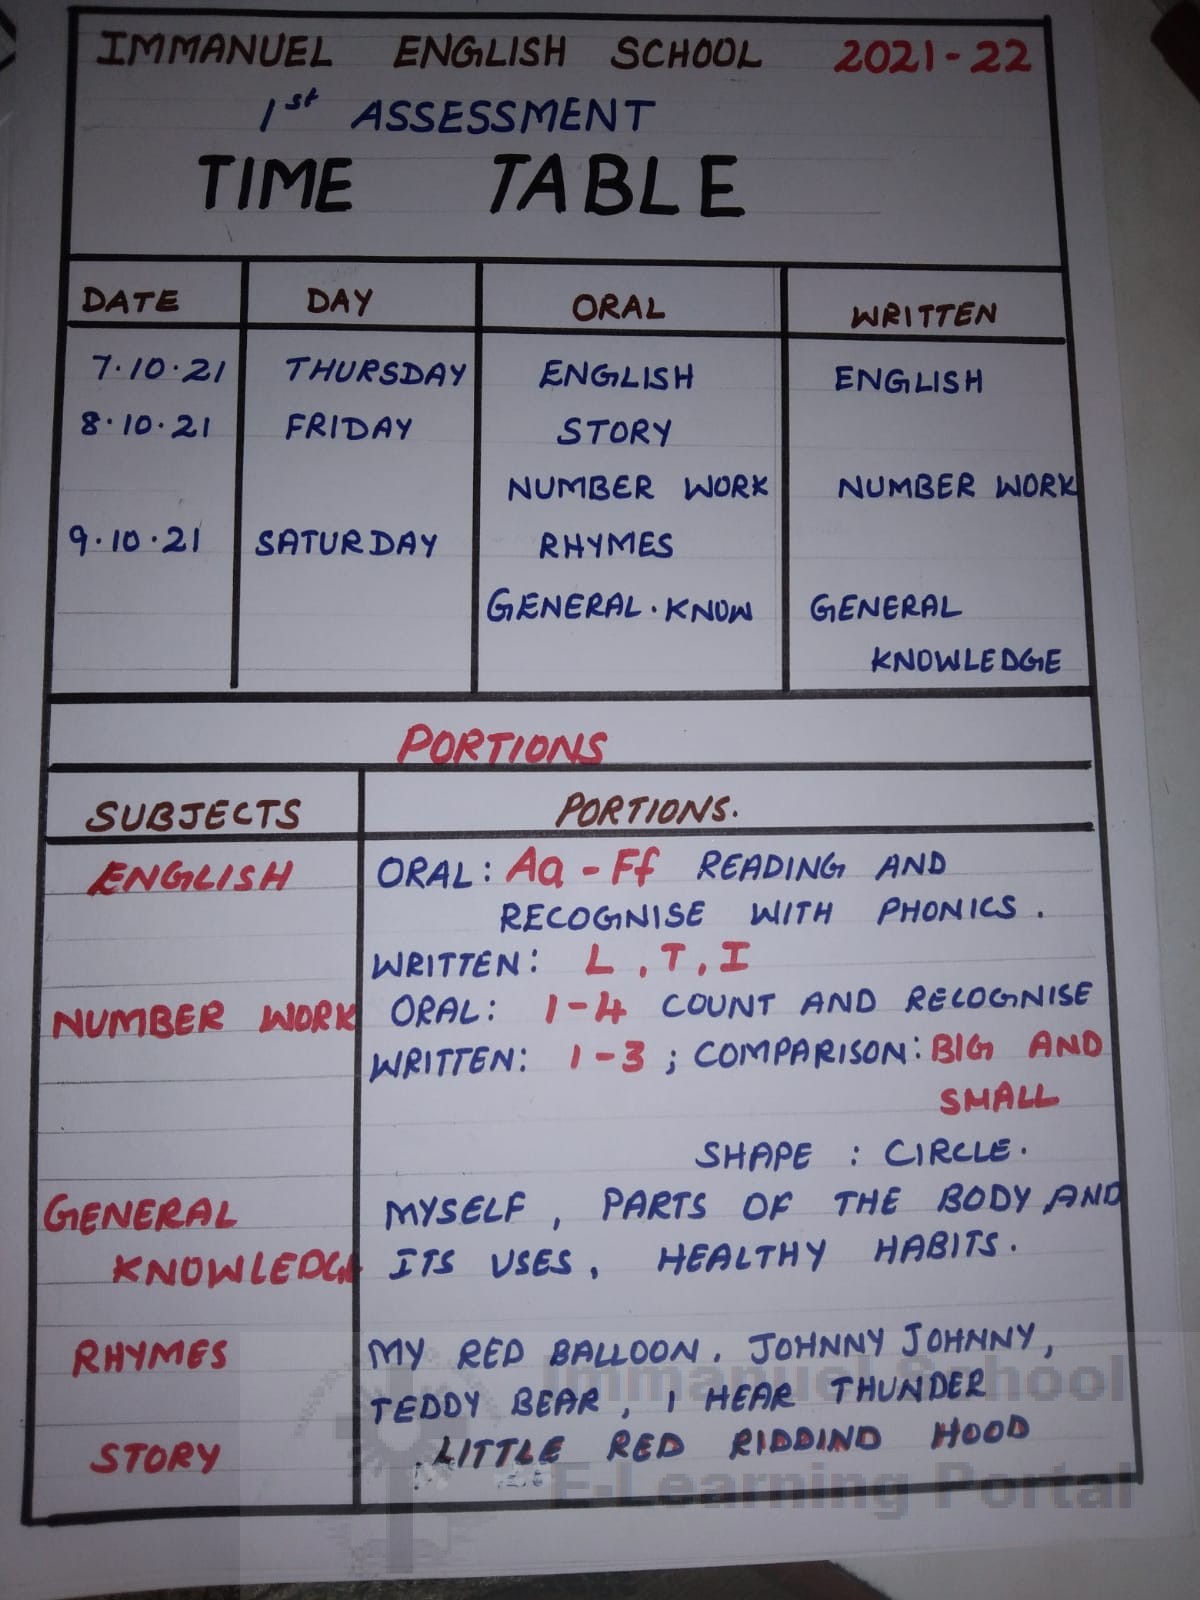 IMMANUEL ENGLISH SCHOOL 2021-22
1st ASSESSMENT
TIME TABLE
DATE DAY ORAL WRITTEN
7.10.21 THURSDAY ENGLISH ENGLISH
8.10.21 FRIDAY STORY
NUMBER WORK NUMBER WORK
9.10.21 SATURDAY RHYMES
GENERAL.KNOW GENERAL
KNOWLEDGE
PORTIONS
SUBJECTS PORTIONS.
ENGLISH ORAL: Aa - Ff READING AND
RECOGNISE WITH PHONICS.
WRITTEN: L, T, I
NUMBER WORK ORAL: 1-4 COUNT AND RECOGNISE
WRITTEN: 1-3; COMPARISON: BIG AND
SMALL
SHAPE : CIRCLE.
GENERAL MYSELF, PARTS OF THE BODY AND
KNOWLEDGE ITS USES, HEALTHY HABITS.
RHYMES MY RED BALLOON. JOHNNY JOHNNY,
TEDDY BEAR, I HEAR THUNDER
STORY LITTLE RED RIDDIND HOOD
Immanuel School
E-Learning Portal